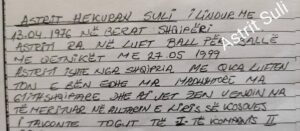 ASTRIT HEKURAN SULI I LINDUR ME
13.04.1976 NË BERAT SHQIPËRI
ASTRITI RA NË LUFT BALL PËR BALLË
ME ÇETNIKËT ME 27 05 1999
ASTRITI ISHTE NGA SHQIPRIA ME LUFTEN
TON E ZËN EDHE MA
GJITHSHQIPTARE DHE AI JET ZENI VENDIN
TË MERITUAR NË ALTARIN E LIRIS SË KOSOVËS
I TAKONTE TOGUT TË II-TË KOMPANIS II
Astrit Suli